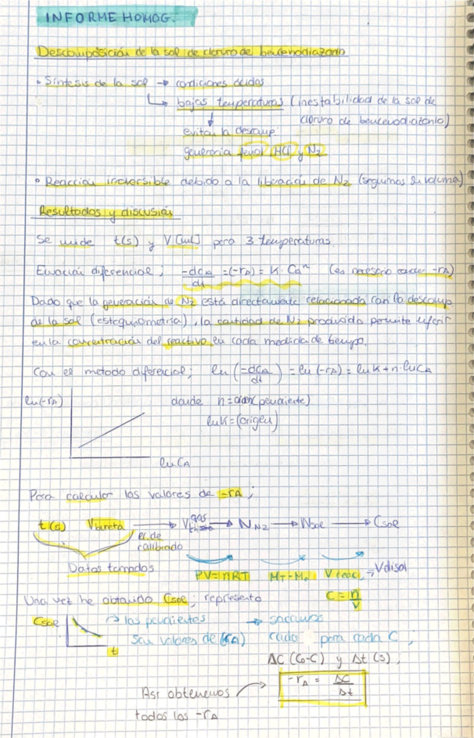 INFORME HOMOG.
Descomposición de la sal de cloruro de bencenodiazonio
• Síntesis de la sal → condiciones ácidas
→ bajas temperaturas (inestabilidad de la sal de
cloruro de bencenodiazonio)
evitan la descomp.
generaría fenol, HCl y N2
• Reacción irreversible debido a la liberación de N2 (seguimos su volumen)
Resultados y discusión
Se mide t(s) y V(mL) para 3 temperaturas.
Ecuación diferencial; -dCA/dt = (-rA) = K CA^n (es necesario -rA)
Dado que la generación de N2 está directamente relacionada con la descomp.
de la sal (estequiometría), la cantidad de N2 producida permite inferir
en la concentración del reactivo en cada medida de tiempo.
Con el método diferencial; ln(-dCA/dt) = ln(-rA) = lnK + n·lnCA
ln(-rA)
donde n = orden (pendiente)
lnK = (origen)
lnCA
Para calcular los valores de -rA;
t(s) Vbureta → V gas → NN2 → Nsal → Csal
R. de calibrado
Datos tomados PV=nRT V reac. → Vdisol
C = n/V
Una vez he obtenido Csal, represento
Csal → las pendientes → sacamos
son valores de (-rA) cada para cada C;
t
ΔC (C0-C) y Δt (s);
-rA = ΔC/Δt
Así obtenemos
todos los -rA